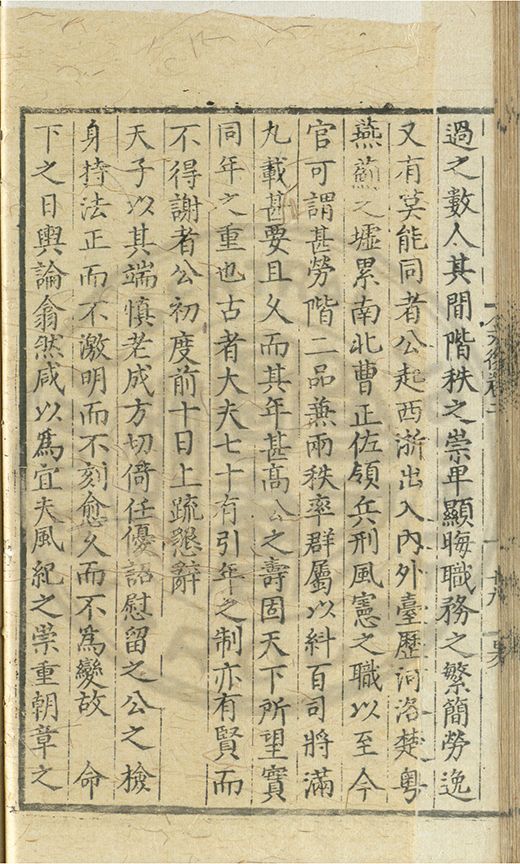 過之數人其間階秩之崇卑顯晦職務之繁簡勞逸
又有莫能同者公起西浙出入內外臺歷河洛楚粤
燕薊之墟累南北曹正佐領兵刑風憲之職以至今
官可謂甚勞階二品兼兩秩率群屬以糾百司將滿
九載甚要且久而其年甚髙公之壽固天下所望實
同年之重也古者大夫七十有引年之制亦有賢而
不得謝者公初度前十日上疏懇辭
天子以其端慎老成方切倚任優詔慰留之公之檢
身持法正而不激明而不刻愈久而不爲變故 命
下之日輿論翕然咸以爲宜夫風紀之崇重朝章之